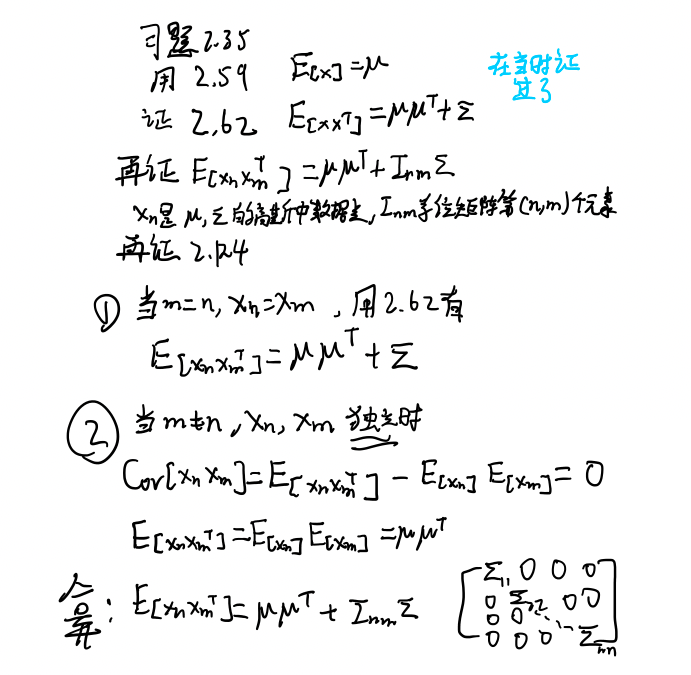 习题 2.35
用 2.59 E[x]=μ
在当时证
过了
证 2.62 E[xxᵀ]=μμᵀ+Σ
再证 E[xₙxₘᵀ]=μμᵀ+IₙₘΣ
xₙ是 μ,Σ 的高斯中数据点,Iₙₘ单位矩阵第(n,m)个元素
再证 2.124
① 当m=n,xₙ=xₘ,用2.62有
E[xₙxₘᵀ]=μμᵀ+Σ
② 当m≠n,xₙ,xₘ 独立时
Cov[xₙxₘ]=E[xₙxₘᵀ]-E[xₙ]E[xₘ]=0
E[xₙxₘᵀ]=E[xₙ]E[xₘ]=μμᵀ
合并:E[xₙxₘᵀ]=μμᵀ+Iₙₘ Σ
Σ₁₁ 0 0 0
0 Σ₂₂ 0 0
0 0 ⋱
0 0 0 Σₙₙ